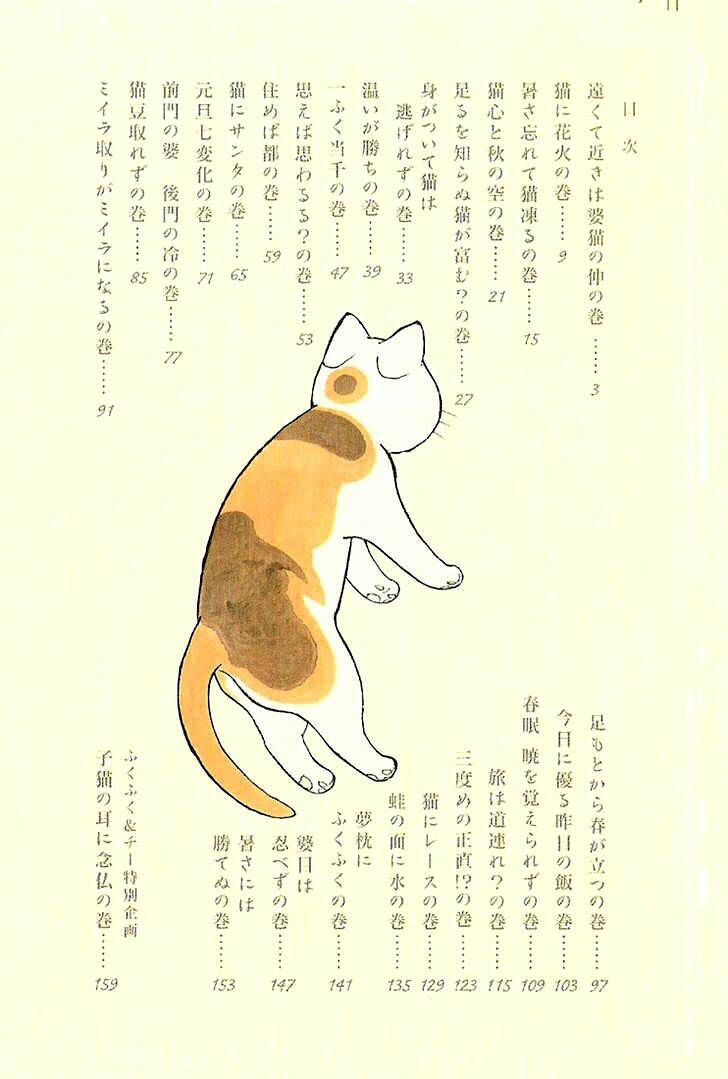 目次
遠くて近きは婆猫の仲の巻……3
猫に花火の巻……9
暑さ忘れて猫凍るの巻……15
猫心と秋の空の巻……21
足るを知らぬ猫が富む?の巻……27
身がついて猫は
逃げれずの巻……33
温いが勝ちの巻……39
一ふく当千の巻……47
思えば思わるる?の巻……53
住めば都の巻……59
猫にサンタの巻……65
元旦七変化の巻……71
前門の婆 後門の冷の巻……77
猫豆取れずの巻……85
ミイラ取りがミイラになるの巻……91
足もとから春が立つの巻……97
今日に優る昨日の飯の巻……103
春眠 暁を覚えられずの巻……109
旅は道連れ?の巻……115
三度めの正直!?の巻……123
猫にレースの巻……129
蛙の面に水の巻……135
夢枕に
ふくふくの巻……141
婆日は
忍べずの巻……147
暑さには
勝てぬの巻……153
ふくふく&チー特別企画
子猫の耳に念仏の巻……159